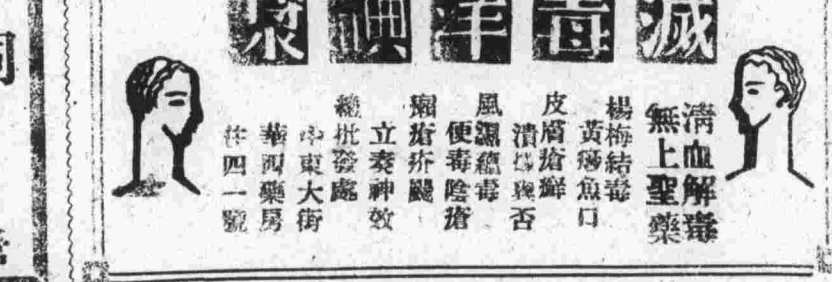 滅毒
清血解毒
無上聖藥
楊梅結毒
黃魚口
皮膚瘡癬
潰瘍與否
風濕毒
便毒陰瘡
瘡疥
立奏神效
總批發處
中東大街
華西藥房
四一號